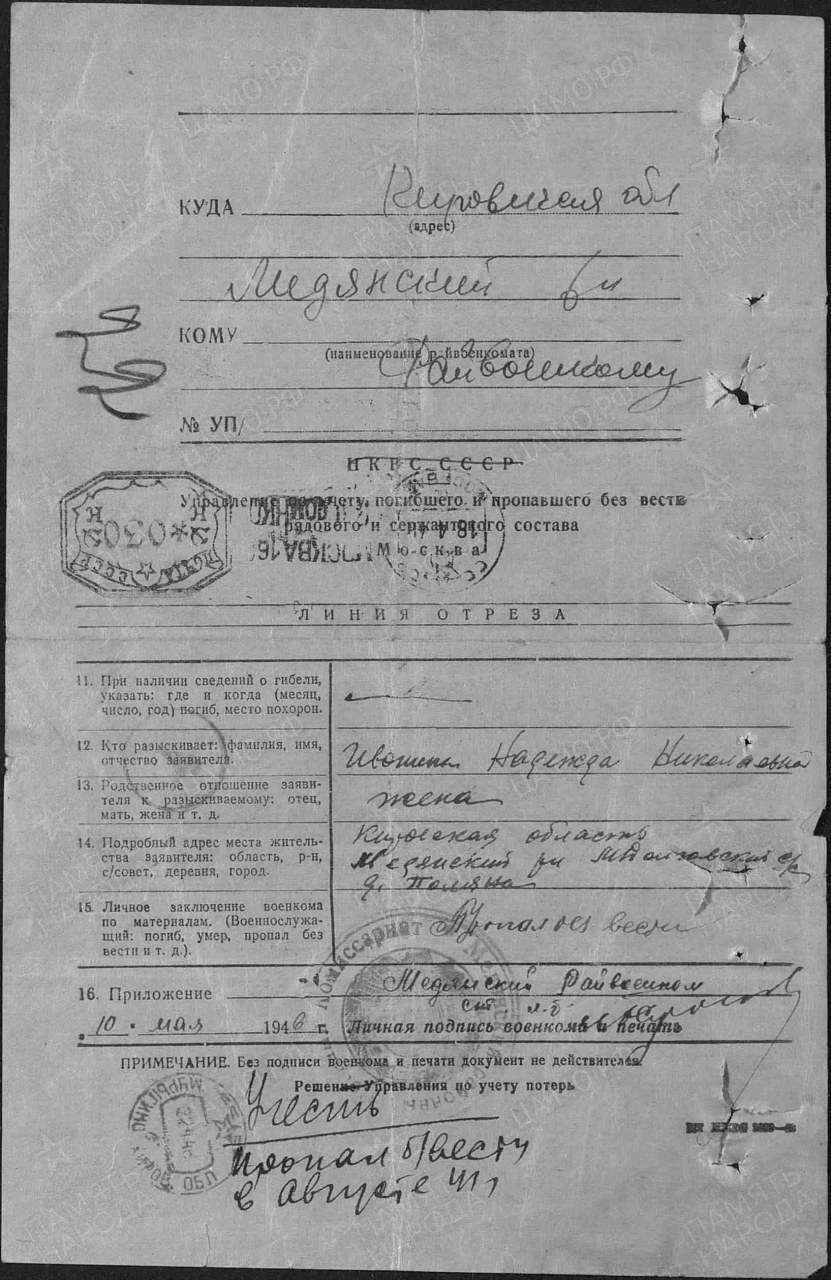 КУДА Кировская обл
(адрес)
Медянский р-н
КОМУ
(наименование райвоенкомата)
Райвоенкому
№ УП/
НКВС СССР
Управление по учету погибшего и пропавшего без вести
рядового и сержантского состава
Москва
ПОЧТА СССР
*030
МОСКВА 16
ЛИНИЯ ОТРЕЗА
11. При наличии сведений о гибели,
указать: где и когда (месяц,
число, год) погиб, место похорон.
12. Кто разыскивает: фамилия, имя,
отчество заявителя.
Ивонина Надежда Николаевна
13. Родственное отношение заяви-
теля к разыскиваемому: отец,
мать, жена и т. д.
жена
14. Подробный адрес места житель-
ства заявителя: область, р-н,
с/совет, деревня, город.
Кировская область
Медянский р-н с/с
д.
15. Личное заключение военкома
по материалам. (Военнослужа-
щий: погиб, умер, пропал без
вести и т. д.).
Пропал без вести
16. Приложение
Медянский Райвоенком
10 . мая 1946 г. Личная подпись военкома и печать
ПРИМЕЧАНИЕ. Без подписи военкома и печати документ не действителен.
Решение Управления по учету потерь
Учесть
пропал б/вести
в августе 41 г
МУРЫГИНО
ОБЛ